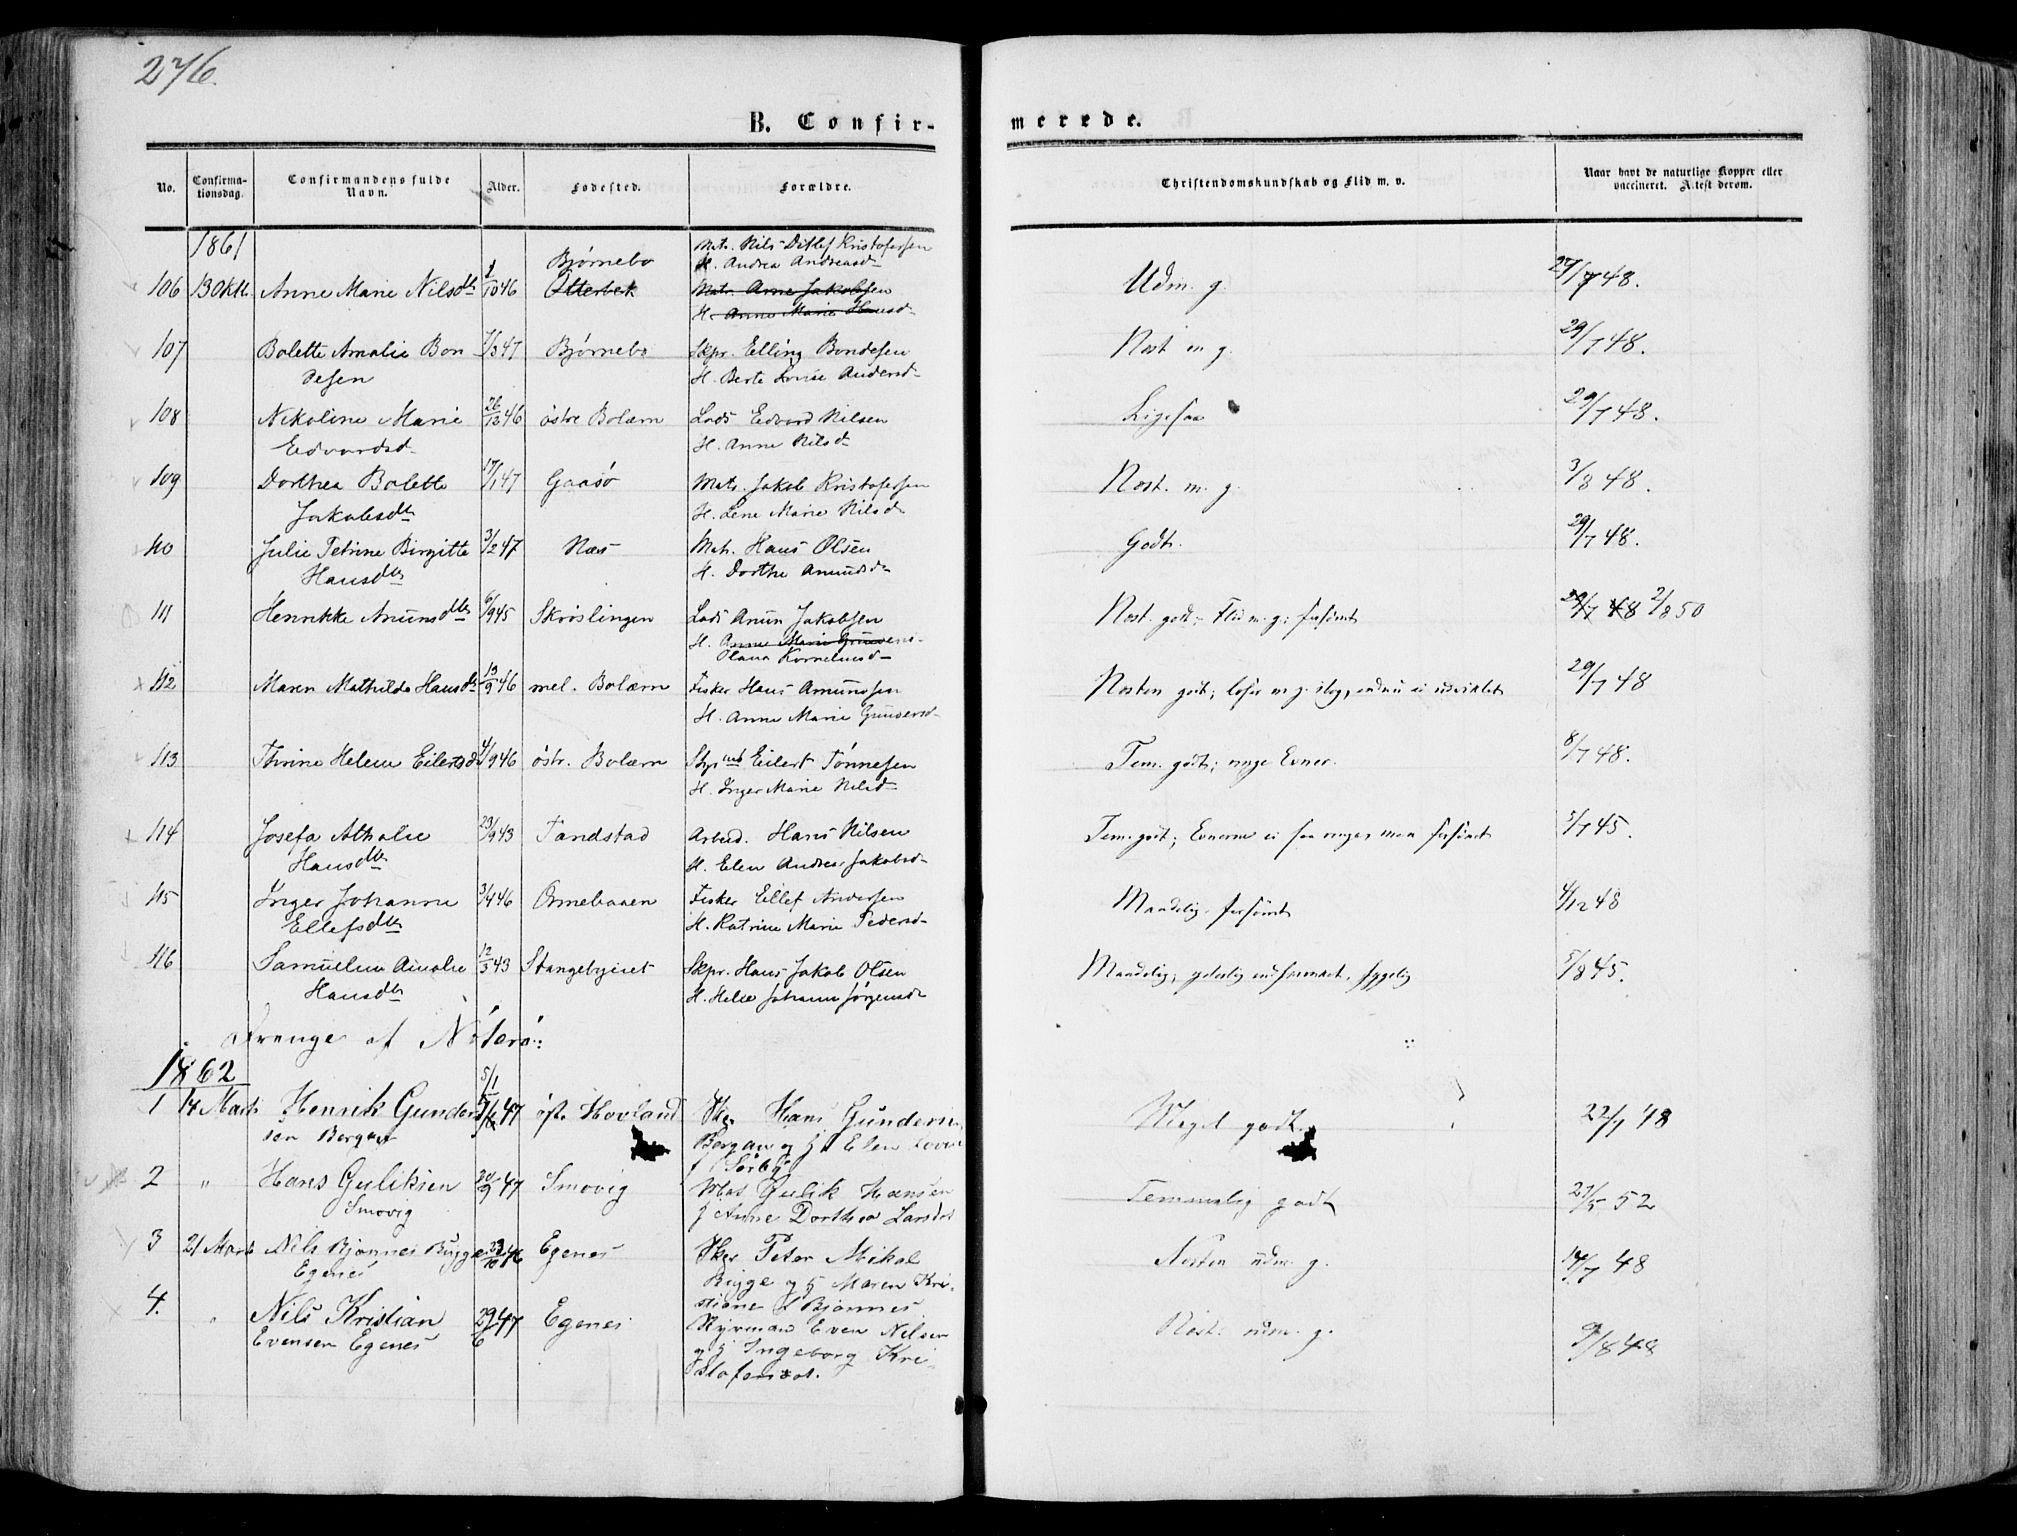 276.
B. Confirmerede.
No. Confirmationsdag. Confirmandens fulde Navn. Alder. Fødested. Forældre. Christendomskundskab og Flid m. v. Naar havt de naturlige Kopper eller vaccineret. Attest derom.
1861 Bjørnebo Matr. Nils Ditlef Kristofersen
H. Andrea Andreasd
106 13 Okt. Anne Marie Nilsdtr 1/10 46 Otterbek Matr. Arne Jakobsen Udm. g. 29/7 48.
H. Anne Marie Hansd
107 Bolette Amalie Bon 7/3 47 Bjørnebo Skpr. Elling Bondesen Næst m g. 29/7 48.
desen H. Berte Lovise Andersd
108 Nikoline Marie 26/12 46 østre Bolærn Lods Edvard Nilsen Ligesaa 29/7 48.
Edvardsd H. Anne Nilsd
109 Dorthea Bolette 17/1 47 Gaasø Matr. Jakob Kristofersen Næst. m. g. 3/8 48.
Jakobsdtr H. Lene Marie Nilsd
110 Julie Petrine Birgitte 3/2 47 Næs Matr. Hans Olsen Godt. 29/7 48.
Hansdtr H. Dorthe Amundsd
111 Henrikke Anunsdtr 6/9 45 Skrøslingen Lods Anun Jakobsen Næst. godt; Flid m. g; forsømt 29/7 48 2/8 50
H. Anne Marie Gunders
Olava Korneliusd
112 Maren Mathilde Hansdtr 13/9 46 mel. Bolærn Fisker Hans Amundsen Næsten godt; læser m. g. i bog, endnu ei udviklet 29/7 48
H. Anne Marie Gundersd
113 Thrine Helene Eilertsd 4/9 46 østr. Bolærn Styrmd Eilert Tønnesen Tem. godt; ringe Evner. 8/7 48.
H. Inger Marie Nilsd
114 Josefa Athalie 23/9 43 Tandstad Arbeid. Hans Nilsen Tem. godt; Evnerne ei saa ringe, men forsømt 5/7 45.
Hansdtr H. Elen Andrea Jakobsd
115 Inger Johanne 3/4 46 Ormebaaen Fisker Ellef Andersen Maadelig. forsømt 4/12 48
Ellefsdtr H. Katrine Marie Pedersd
116 Samueline Amalie 12/3 43 Stangebyeiet Skpr. Hans Jakob Olsen Maadelig, sygelig 5/8 45.
Hansdtr H. Helle Johanne Jørgensd
Drenge af Nøterø:
1862 5/1
1 14 Marts Henrik Gunder 47 øst. Hovland Skr Hans Gundersen Meget godt 22/7 48
sen Bergan Bergan og h Elen Lovise
f Sørby
2 " Hans Guliksen 20/9 47 Smovig Mat Gulik Hansen Temmelig godt 21/5 52
Smovig h Anne Dorthea Larsdat
3 21 Marts Nils Bjønnes Bugge 23/10 46 Egenes Skr Peter Mikal Næsten udm. g. 14/7 48
Egenes Bugge og h Maren Kri-
stiane f Bjønnes
4. " Nils Kristian 29/6 47 Egenes Styrmand Even Nilsen Næst. udm. g. 9/8 48
Evensen Egenes og h Ingeborg Kri-
stofersdat.